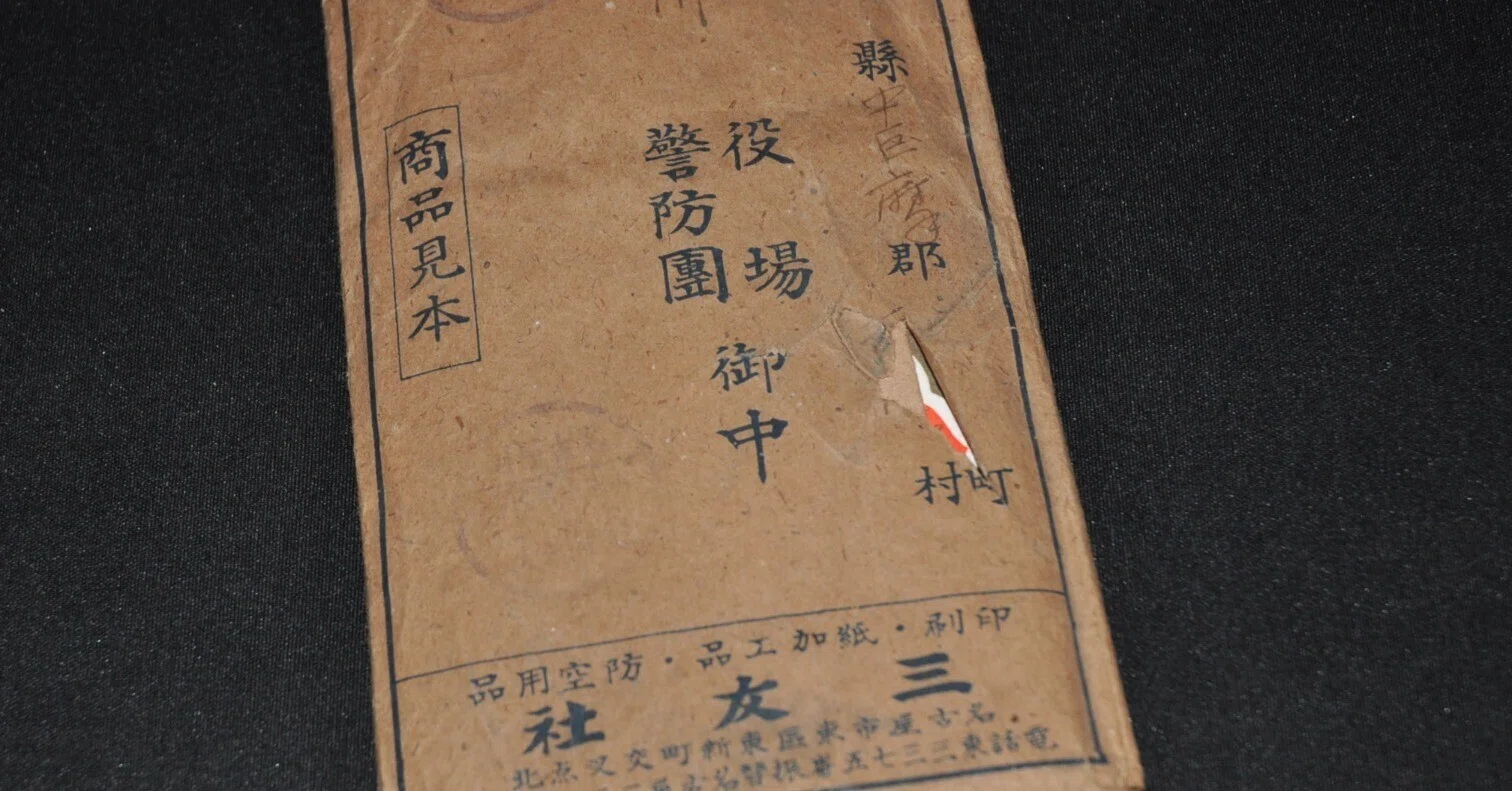 縣中巨摩郡
町村
役場
警防團
御中
商品見本
印刷・紙加工品・防空用品
三友社
名古屋市東區東新町交叉点北
電話東三二二七五番振替名古屋